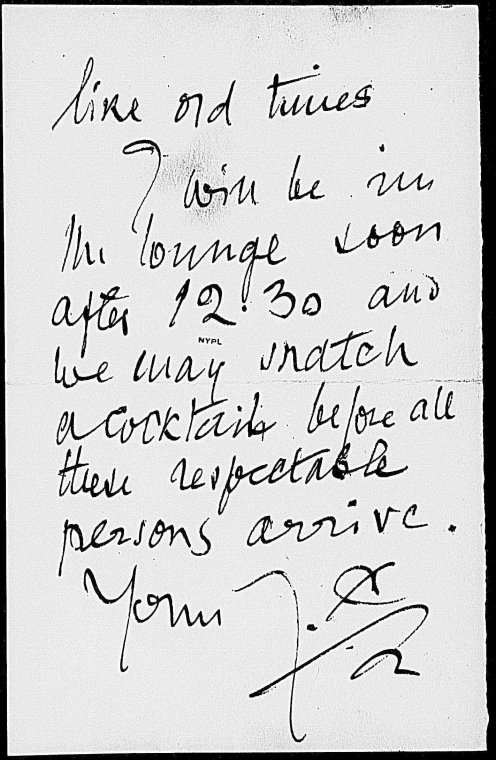 like old times
I will be in
the lounge soon
after 12.30 and
NYPL
we may snatch
a cocktail before all
these respectable
persons arrive.
Yours